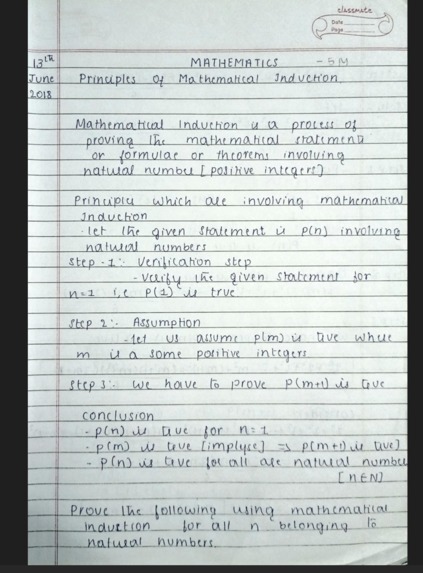 classmate
Date
Page
13th June 2018
MATHEMATICS - 5M
Principles Of Mathematical Induction.
Mathematical Induction is a process of
proving the mathematical statement
or formulae or theorems involving
natural number [positive integers]
Principle which are involving mathematical
Induction
- let the given statement is P(n) involving
natural numbers
Step -1:- Verification step
- verify the given statement for
n=1 i,e P(1) is true
Step 2:- Assumption
- let us assume p(m) is true where
m is a some positive integers
Step 3:- we have to prove P(m+1) is true
conclusion
- P(n) is true for n=1
- p(m) is true [implyse] => p(m+1) is true]
- P(n) is true for all are natural number
[n∈N]
Prove the following using mathematical
Induction for all n belonging to
natural numbers.